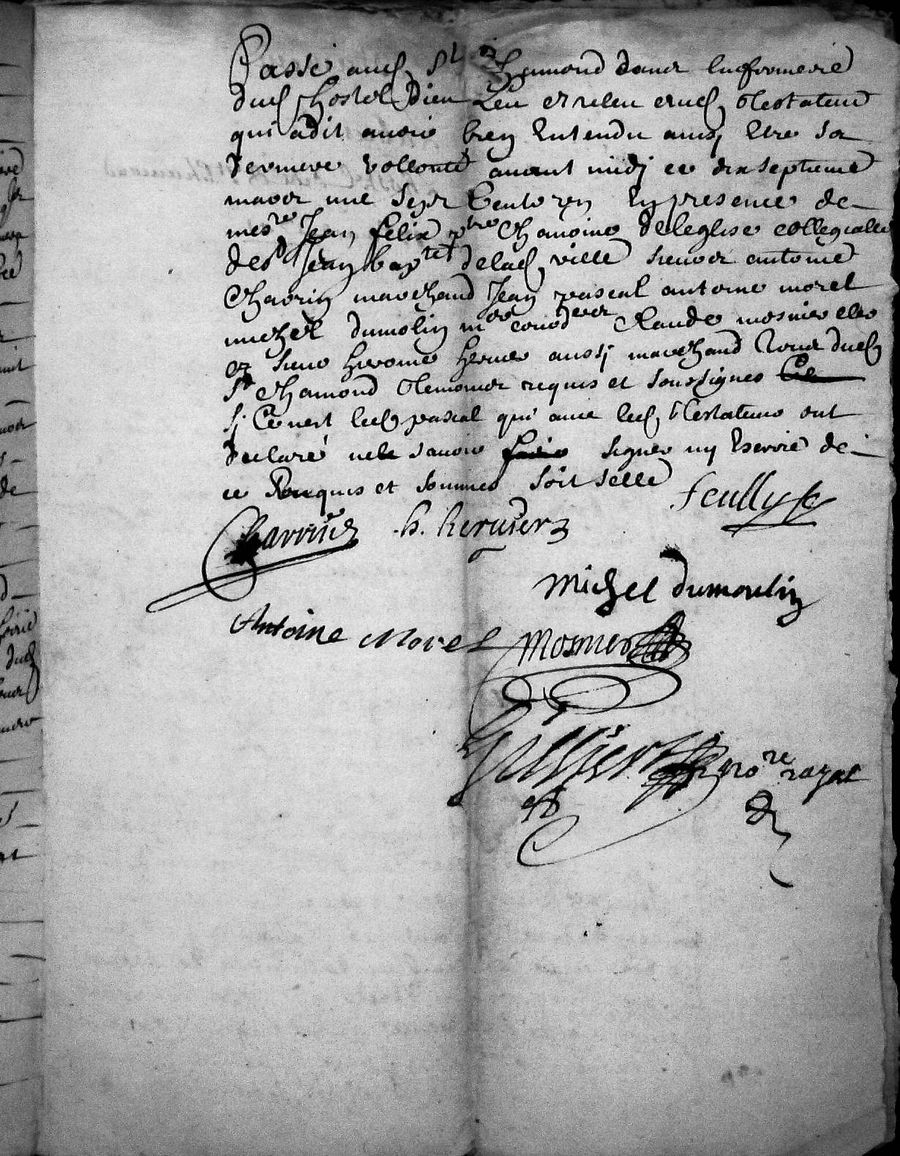 Passé aud St Chamond dans linfirmerie
dud hostel Dieu Leu et releu aud testateur
qui a dit avoir bien Entendu ainsj Etre sa
derniere vollonté avant midj ce dixseptieme
mil Sept Cent En presence de
mesre Jean felix ptre Chanoine de leglise collegialle
de St Jean bapte de lad ville sieur antoine
Charrin marchand Jean pascal antoine morel
michel dumolin Claude mosnier
et sieur hierome heruier aussj marchand tous dud
St Chamond temoins requis et soussignes
sj Ce nest led pascal qui avec led testateur ont
declaré ne savoir signer nj Escrire de
ce Requis et sommes soit sellé
feully
Charrin h. heruier
Michel dumoulin
Antoine Morel Mosnier
nore royal